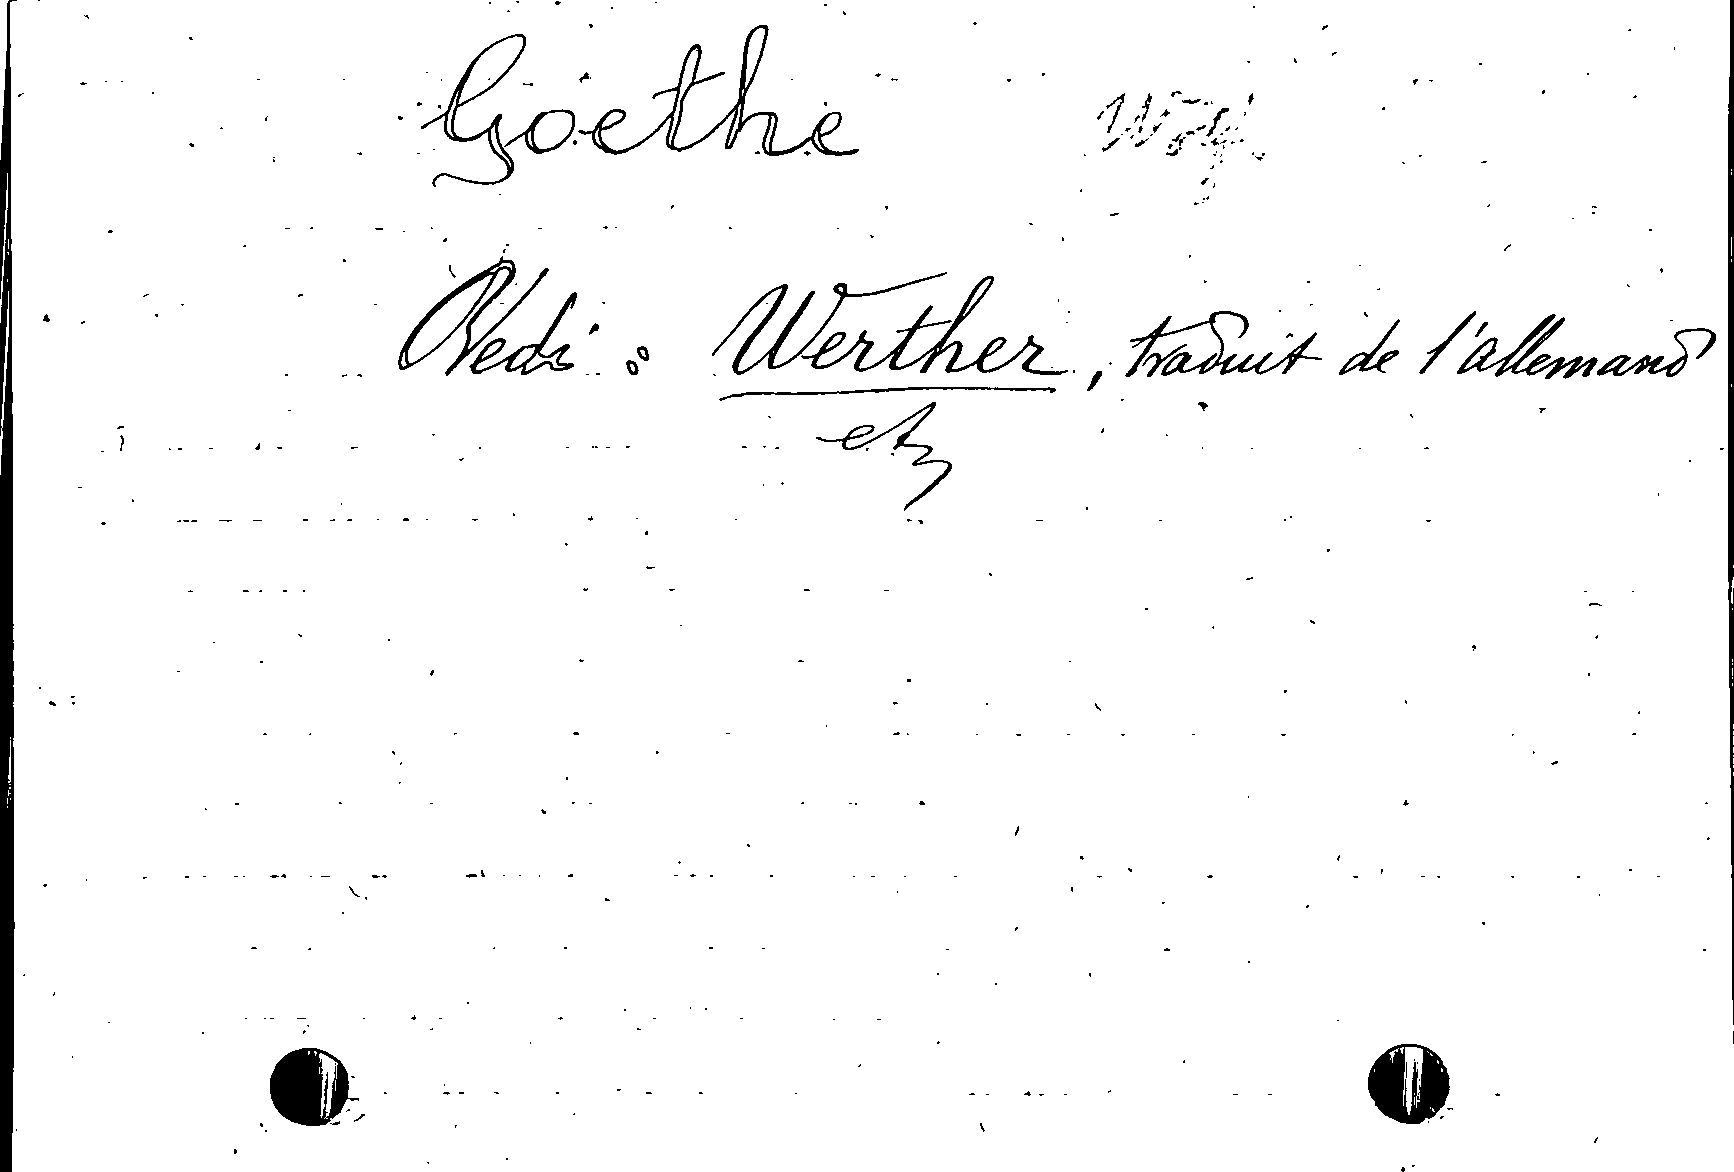 Goethe Wolf.
Vedi: Werther, traduit de l'allemand
etc